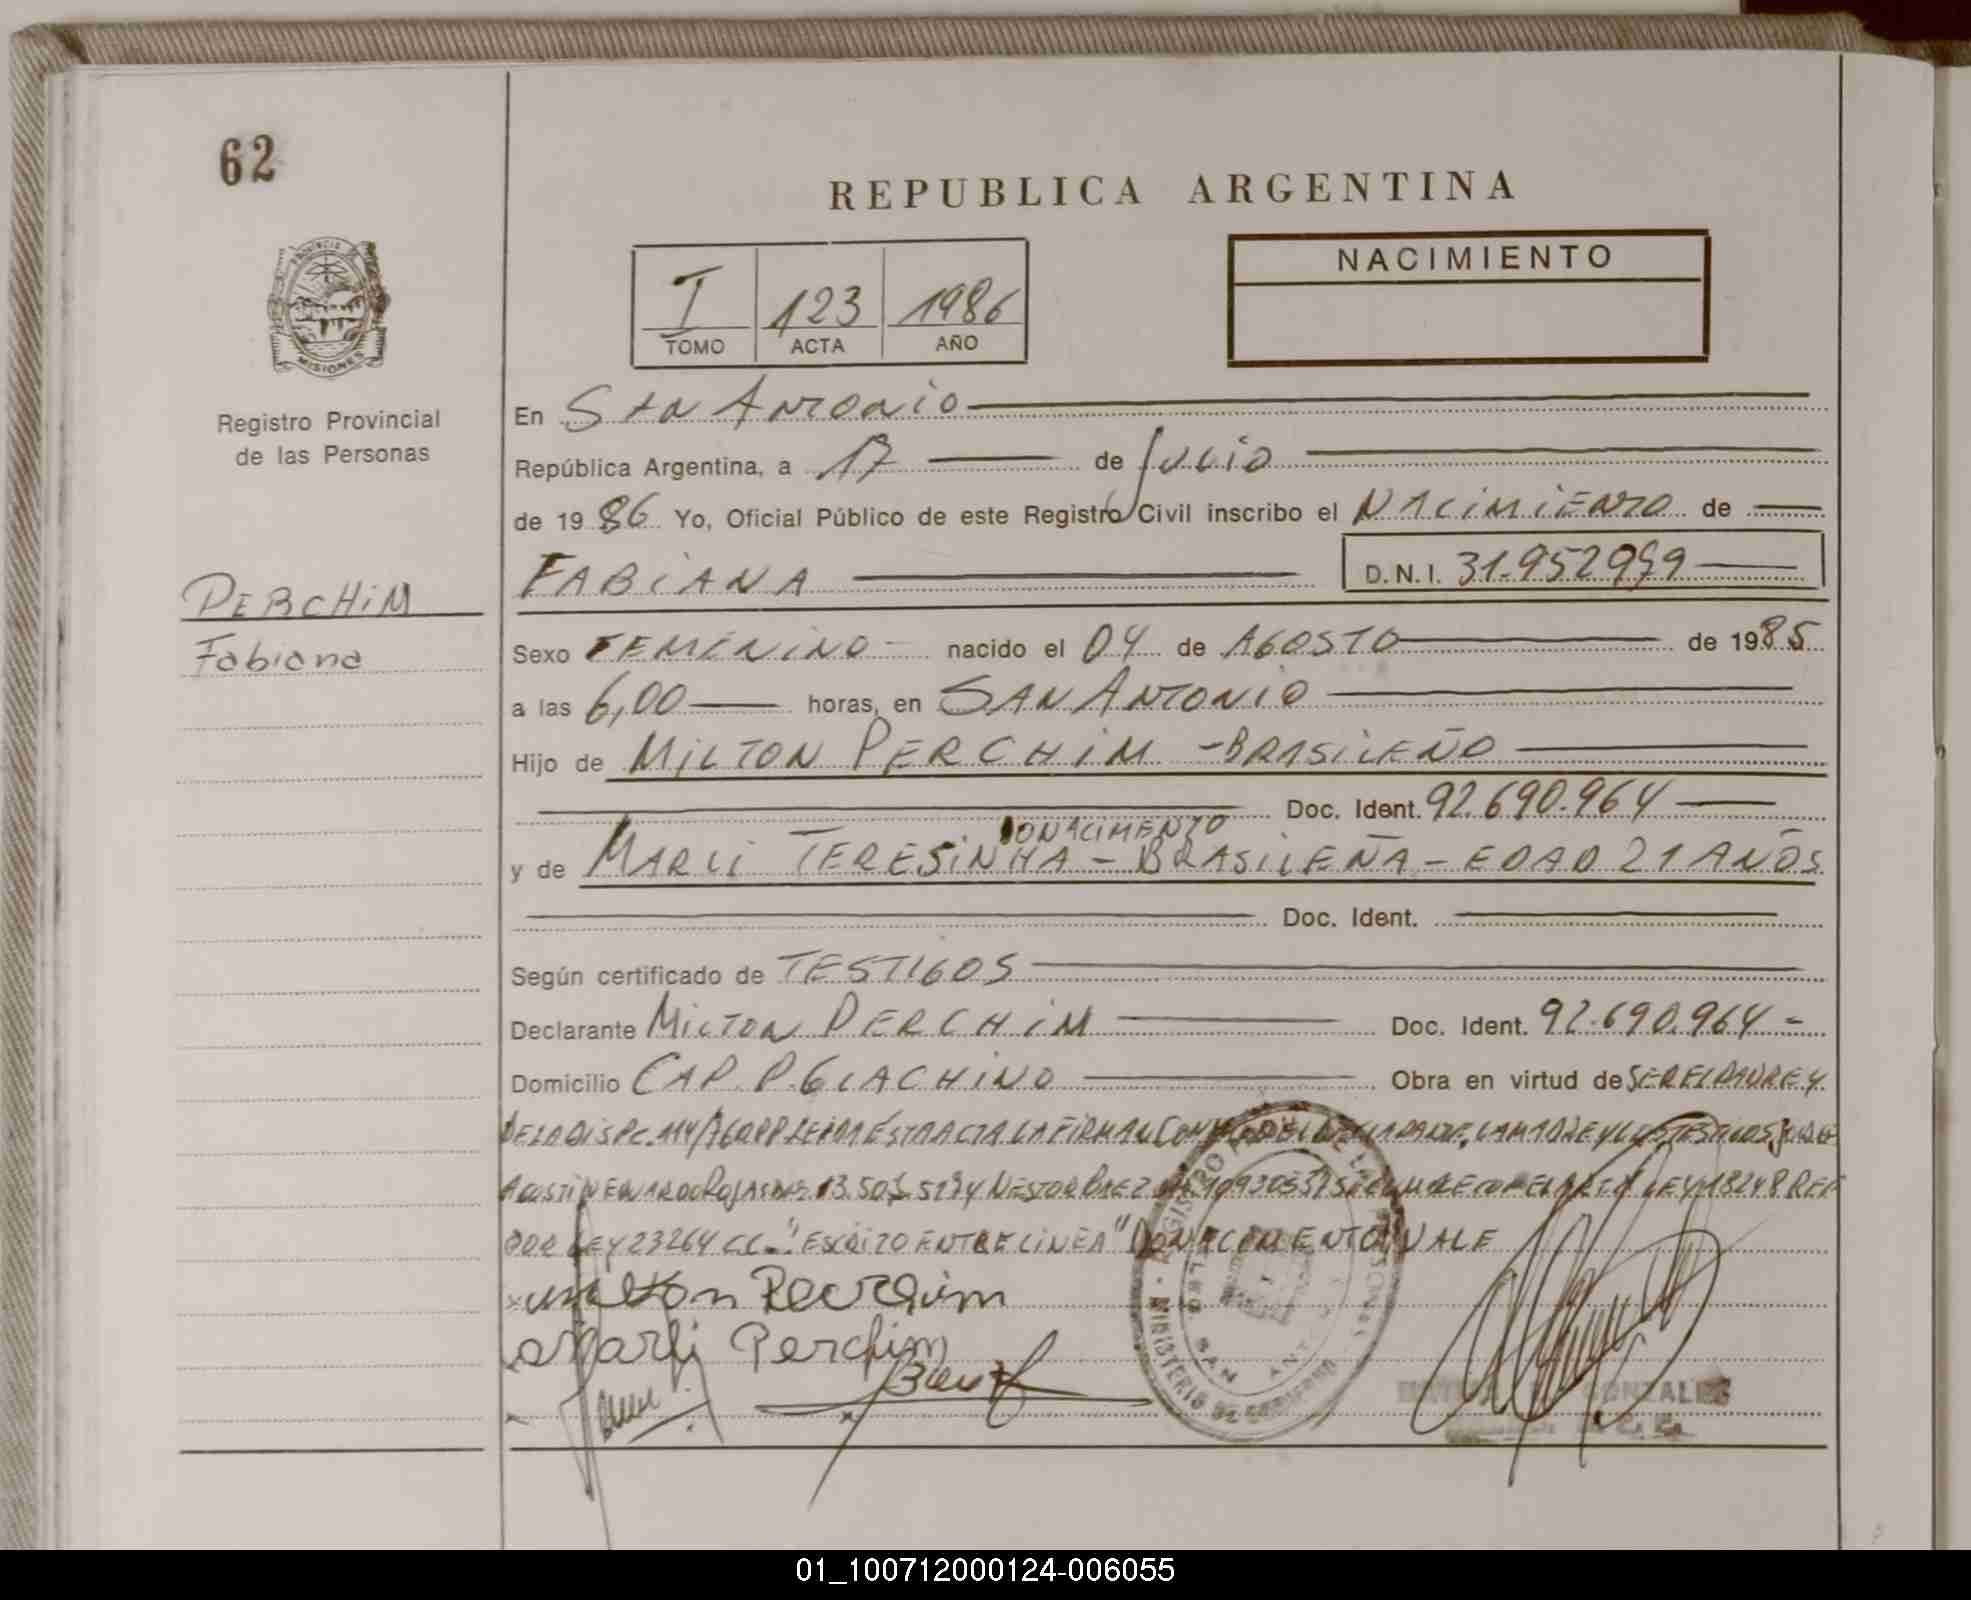 62
REPUBLICA ARGENTINA
PROVINCIA DE MISIONES
I 123 1986
TOMO ACTA AÑO
NACIMIENTO
Registro Provincial
de las Personas
PERCHIM
Fabiana
En SAN ANTONIO
República Argentina, a 17 de JULIO
de 1986 Yo, Oficial Público de este Registro Civil inscribo el NACIMIENTO de
FABIANA D.N.I. 31.952.999
Sexo FEMENINO nacido el 04 de AGOSTO de 1985
a las 6,00 horas, en SAN ANTONIO
Hijo de MILTON PERCHIM - BRASILEÑO
Doc. Ident. 92.690.964
DONACIMENTO
y de MARLI TERESINHA - BRASILEÑA - EDAD 21 AÑOS
Doc. Ident.
Según certificado de TESTIGOS
Declarante MILTON PERCHIM Doc. Ident. 92.690.964
Domicilio CAP. P. GIACHINO Obra en virtud de SER EL PADRE Y
DE LA DISPC. 114/76 DPP LEIDA ESTA ACTA LA FIRMAN CONMIGO EL DECLARANTE, LA MADRE Y LOS TESTIGOS JORGE
AGUSTIN EDUARDO ROJAS Y NESTOR BAEZ LEY 18248 REF
POR LEY 23264 C.C. "ESCRITO ENTRE LINEA" DONACIMENTO VALE
Milton Perchim
Marli Perchim
GONZALES
01_100712000124-006055